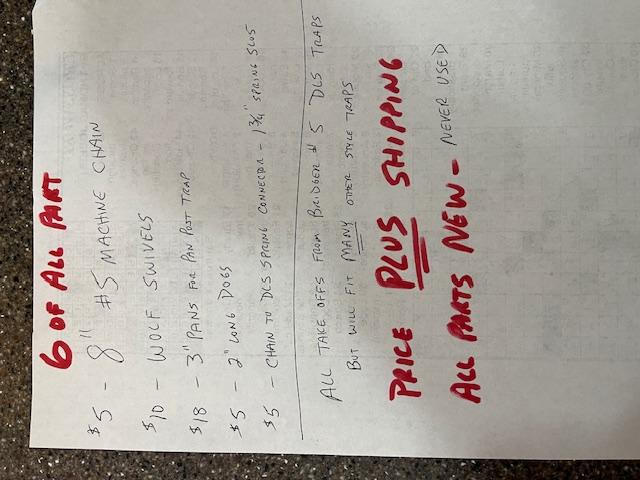 6 OF ALL PART
$5 - 8" #5 MACHINE CHAIN
$10 - WOLF SWIVELS
$18 - 3" PANS FOR PAN POST TRAP
$5 - 2" LONG DOGS
$5 - CHAIN TO DLS SPRING CONNECTOR - 1 3/4" SPRING SLOS
ALL TAKE OFFS FROM BRIDGER # 5 DLS TRAPS
BUT WILL FIT MANY OTHER STYLE TRAPS
PRICE PLUS SHIPPING
ALL PARTS NEW - NEVER USED